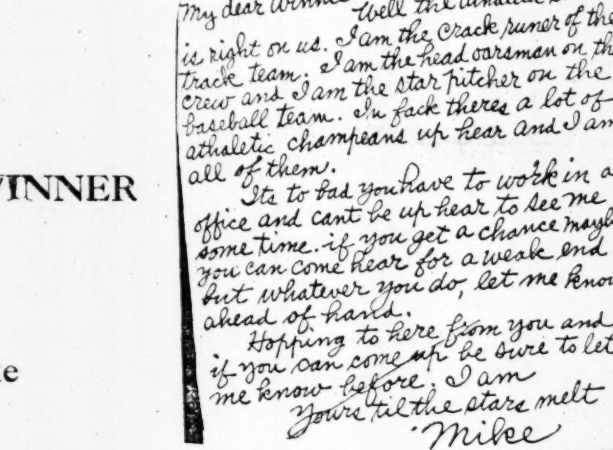 My dear Winnie
Well the
is right on us. I am the crack runer of the
track team. I am the head oarsman on th
crew and I am the star pitcher on the
baseball team. In fack theres a lot of
athaletic champeans up hear and I am
all of them.
Its to bad you have to work in a
office and cant be up hear to see me
some time. if you get a chance mayb
you can come hear for a weak end
but whatever you do, let me know
ahead of hand.
Hopping to here from you and
if you can come up be sure to let
me know before. I am
Yours til the stars melt
Mike
VINNER